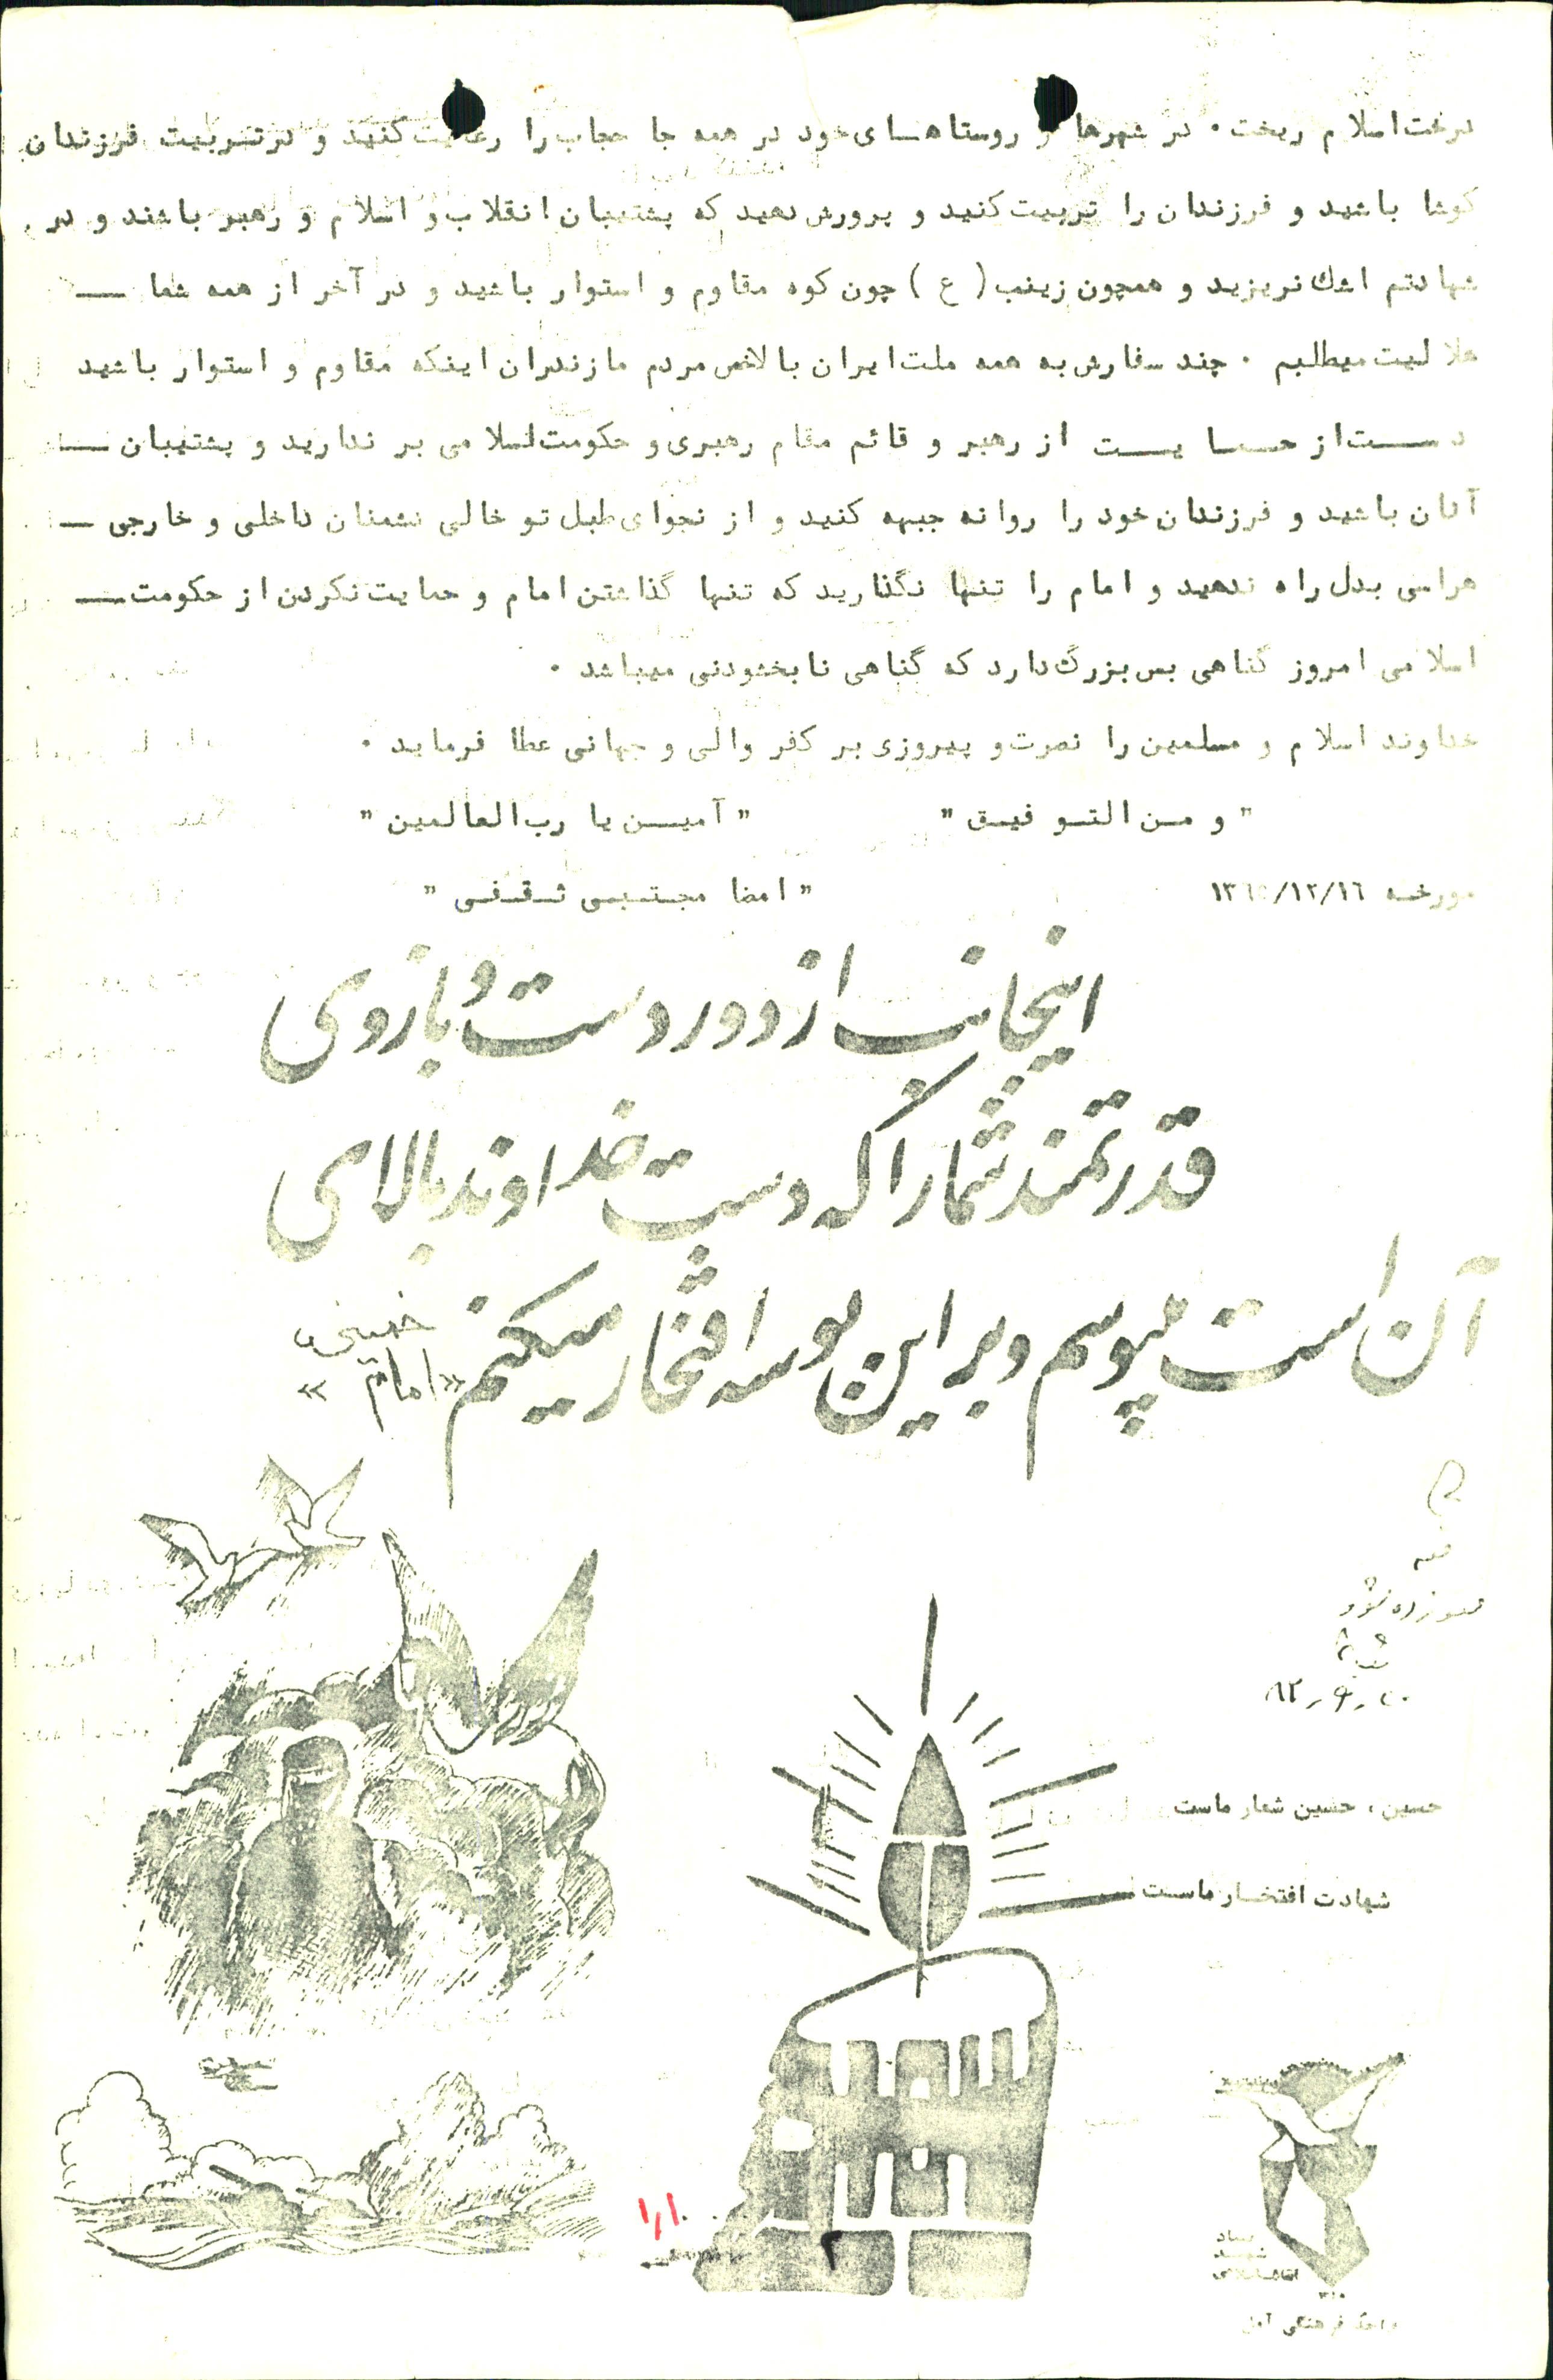 درخت اسلام ریخت . در شهرها و روستاهای خود در همه جا حجاب را رعایت کنید و در تربیت فرزندان
کوشا باشید و فرزندان را تربیت کنید و پرورش دهید که پشتیبان انقلاب و اسلام و رهبر باشند و در
شهادتم اشك نریزید و همچون زینب ( ع ) چون کوه مقاوم و استوار باشید و در آخر از همه شما ـــ
حلالیت میطلبم . چند سفارش به همه ملت ایران بالاخص مردم مازندران اینکه مقاوم و استوار باشید
دست از حمایت از رهبر و قائم مقام رهبری و حکومت اسلامی بر ندارید و پشتیبان ـــ
آنان باشید و فرزندان خود را روانه جبهه کنید و از نجوای طبل تو خالی دشمنان داخلی و خارجی ـــ
هراسی بدل راه ندهید و امام را تنها نگذارید که تنها گذاشتن امام و حمایت نکردن از حکومت ـــ
اسلامی امروز گناهی بس بزرگ دارد که گناهی نابخشودنی میباشد .
خداوند اسلام و مسلمین را نصرت و پیروزی بر کفر والی و جهانی عطا فرماید .
" و من التوفیق " " آمین یا رب العالمین "
مورخه ۱۳٦۵/۱۲/۱٦ " امضا مجتبی ثقفی "
اینجانب از دور دست و بازوی
قدرتمند شما را که دست خداوند بالای
آن است میبوسم و بر این بوسه افتخار میکنم
« امام خمینی »
حسین ، حسین شعار ماست
شهادت افتخار ماست
۱ر۱۰
۲
بنیاد
شهید
انقلاب اسلامی
واحد فرهنگی آمل